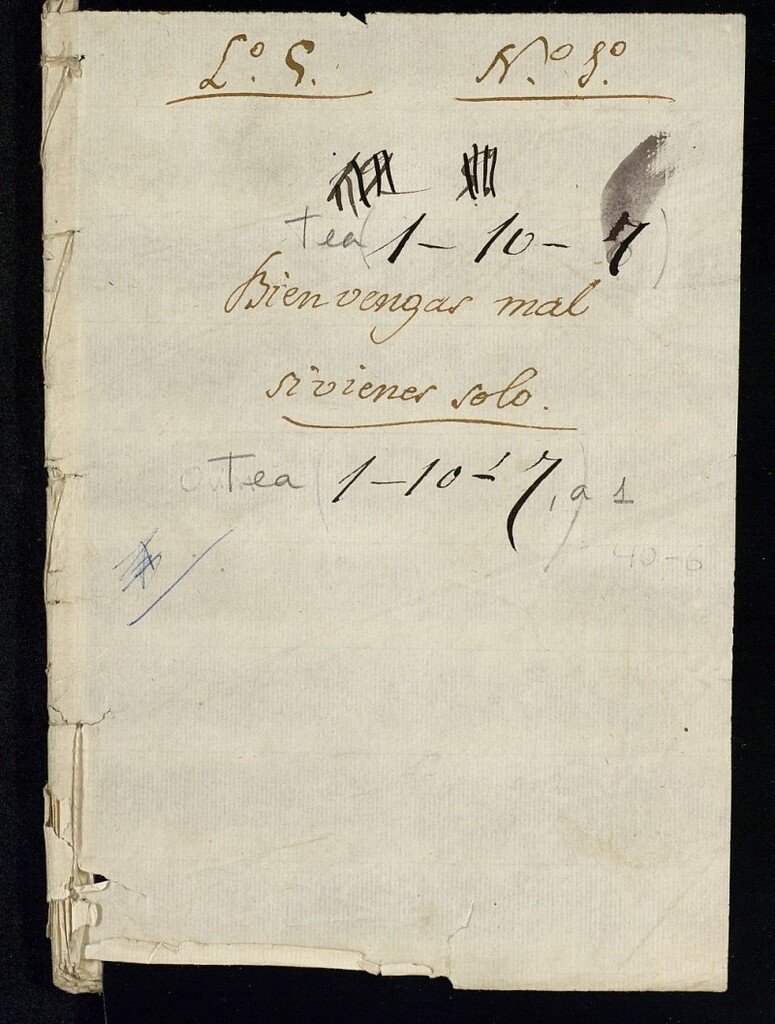 Lº. G. N.º 5º.
Tea (1-10-7)
Bien vengas mal
si vienes solo.
Tea (1-10-7, a 1
40-6